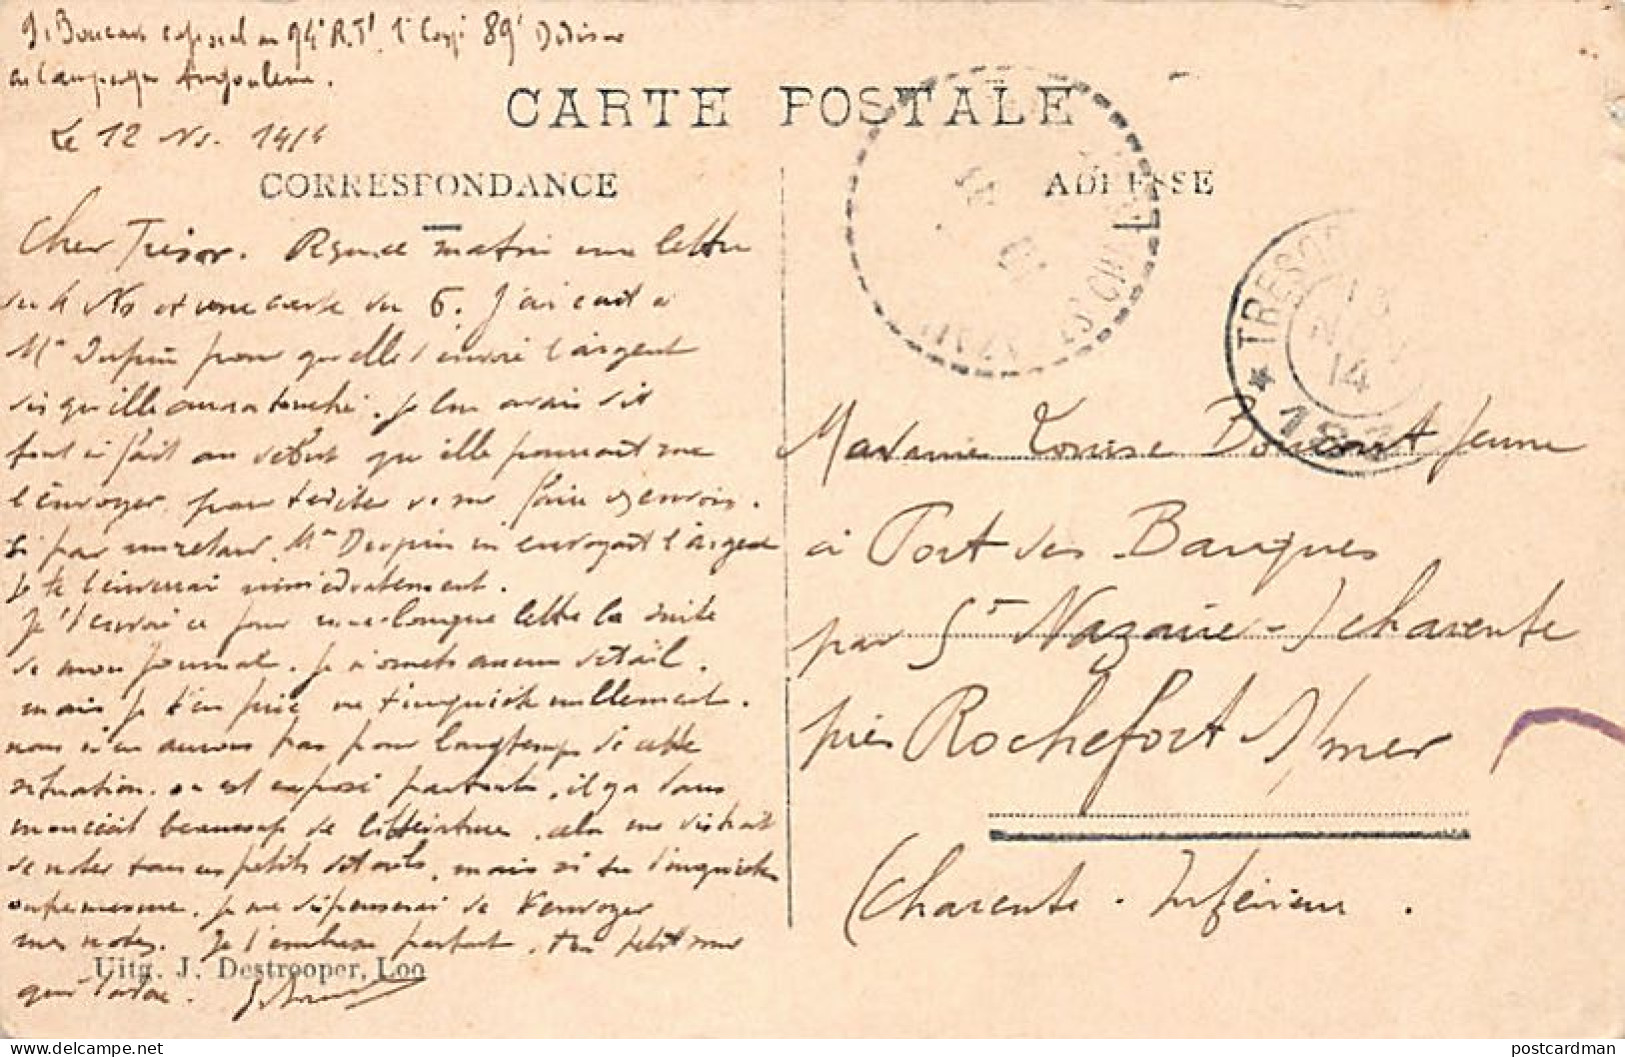 G. Boucard caporal au 94e R.Tl 1e Compie 89e Division
en Campagne Angoulême.
Le 12 Nv. 1914
CARTE POSTALE
CORRESPONDANCE
ADRESSE
Cher Trésor. Reçu ce matin une lettre
du 4 Nv et une carte du 6. J'ai écrit à
Me Dupin pour qu'elle t'envoie l'argent
dès qu'elle aura touché. Je lui avais dit
tout à fait au début qu'elle pourrait me
l'envoyer pour t'éviter de me faire des envois.
Si par un retard, Me Dupin m'envoyait l'argent
je te l'enverrai immédiatement.
Je t'envoie ce jour une longue lettre la suite
de mon journal. Je n'omets aucun détail.
mais je t'en prie ne t'inquiète nullement.
nous n'en aurons pas pour longtemps de cette
situation. on est exposé partout, il y a dans
mon récit beaucoup de littérature, cela me distrait
de noter tous ces petits détails, mais si tu t'inquiètes
outre mesure, je me dispenserai de t'envoyer
mes notes. Je t'embrasse partout, ton petit
qui t'adore. G. Boucard
Uitg. J. Destrooper, Loo
TRESOR
13
NOV
14
Madame Louise Boucard Jeune
à Port des Barques
par St Nazaire-s/charente
près Rochefort s/mer
(Charente-Inférieure.
delcampe.net
postcardman